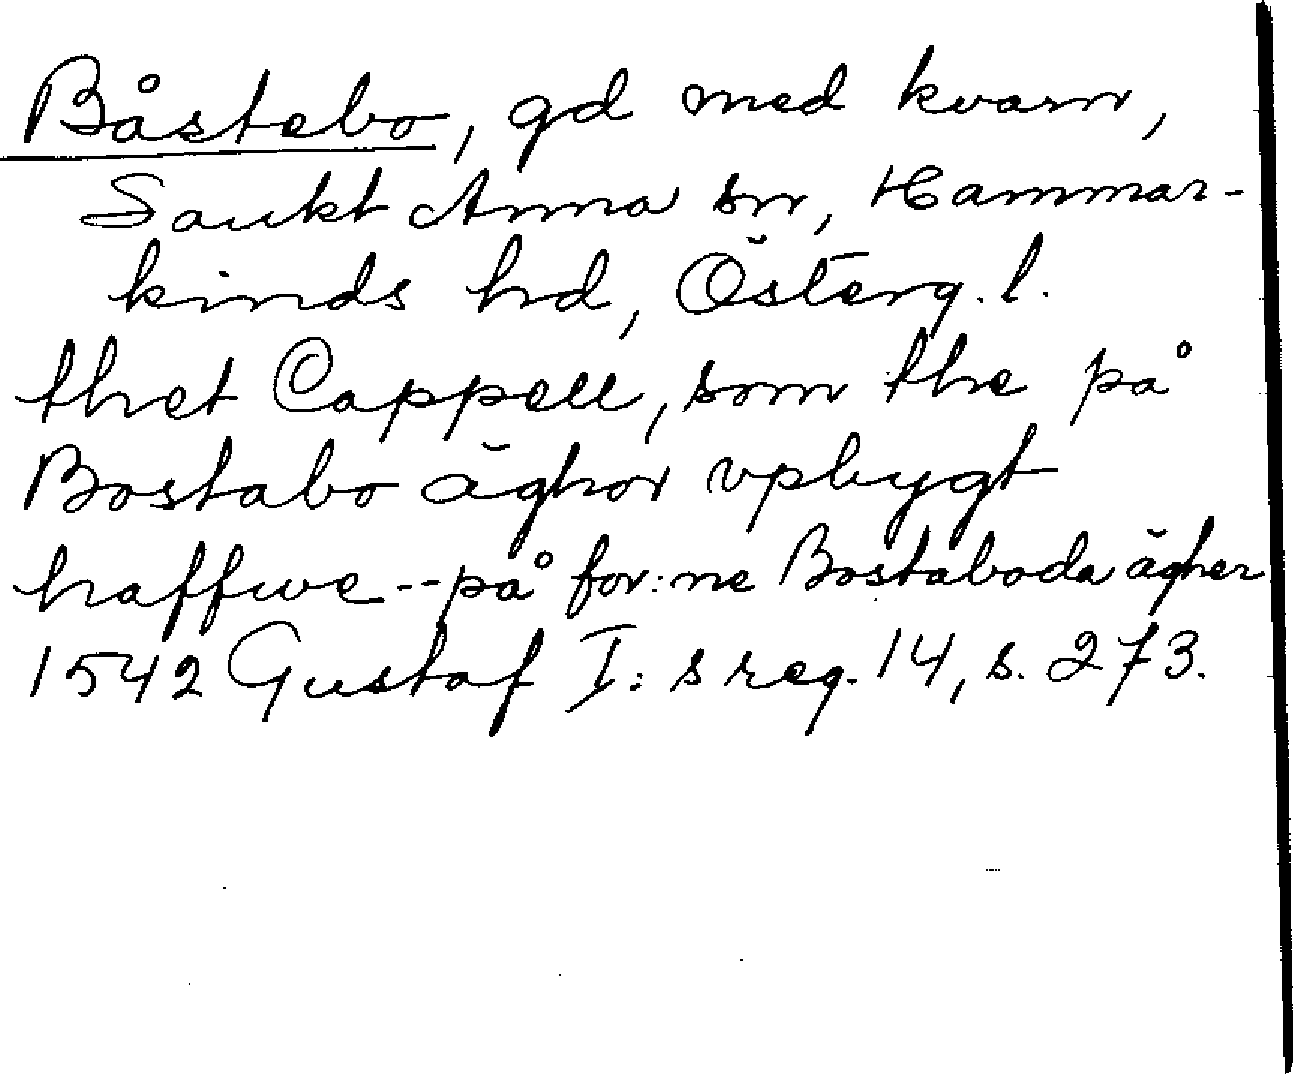 Båstebo, gd med kvarn,
Sankt Anna sn, Hammar-
kinds hd, Österg. l.
thet Cappell, som the på
Bostabo äghor vpbygt
haffwe -- på for:ne Bostaboda ägher
1542 Gustaf I:s reg. 14, s. 273.